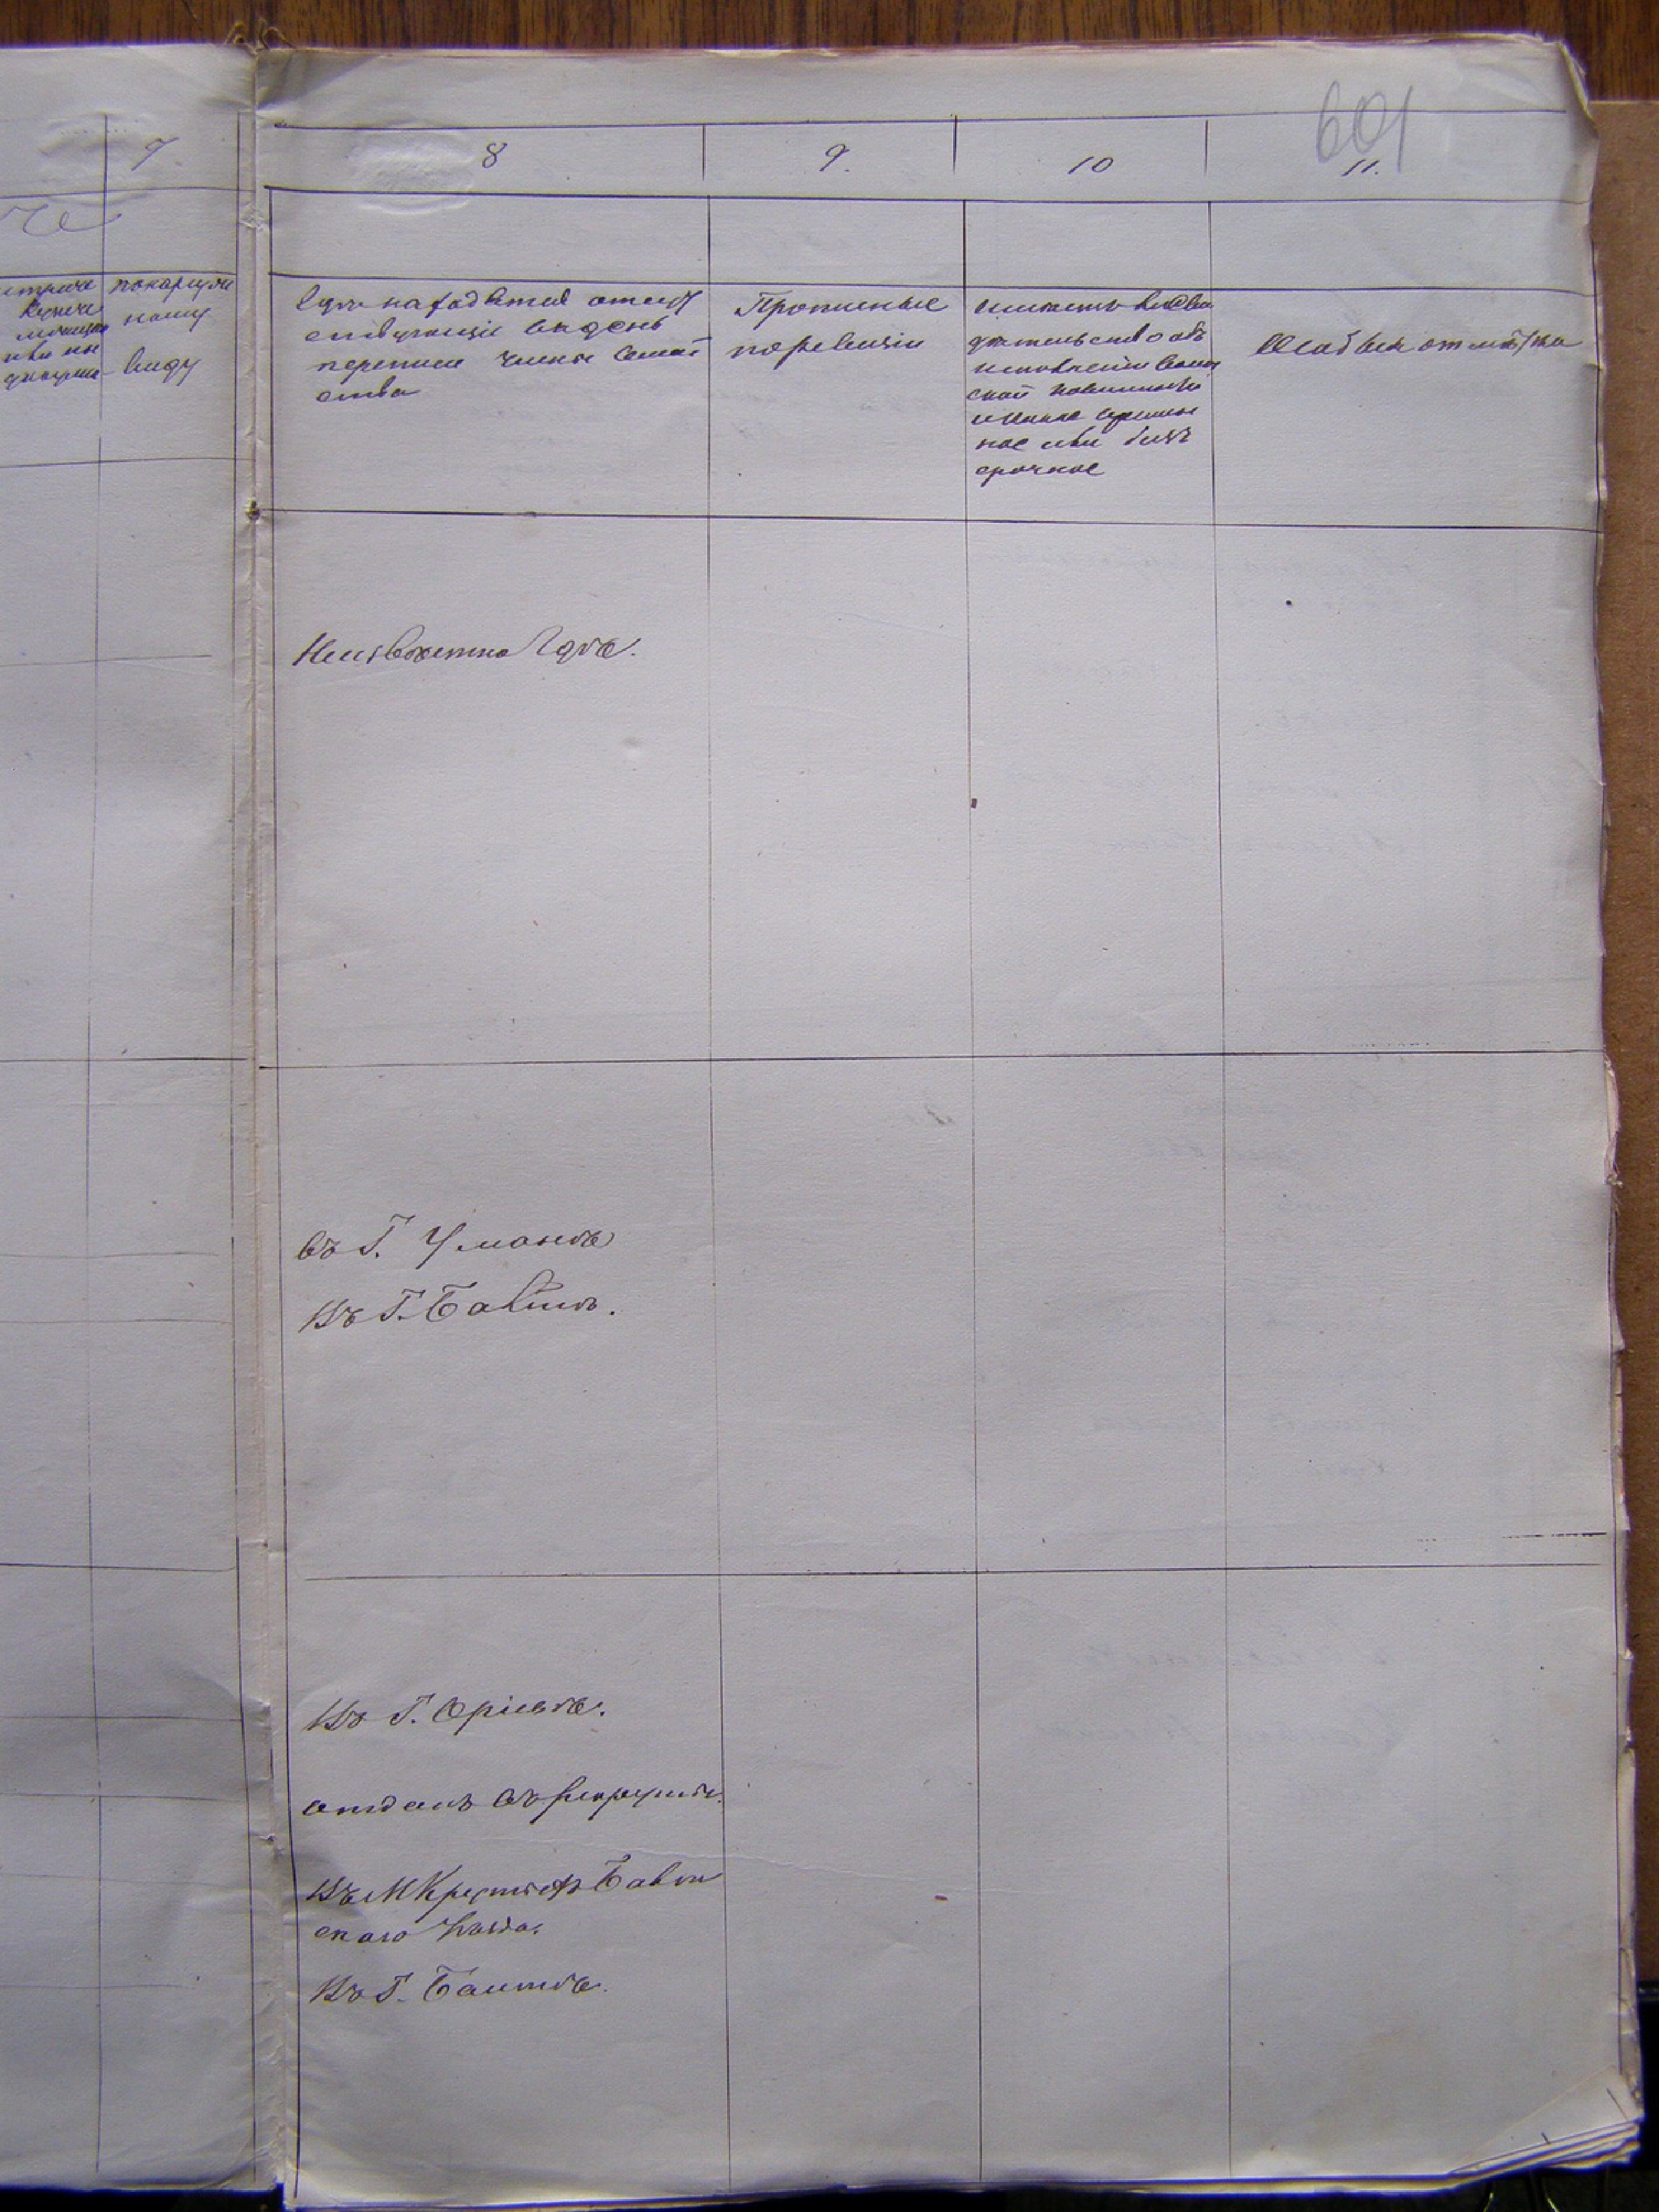 601
7 8 9. 10 11.
покарищи
ному
виду
Где находятся отсут
ствующіе въ день
переписи члены семей
ства
Прописные
по ревизіи
имѣетъ ли сви
дѣтельство объ
исполненіи воин
ской повинности
и какое срочное
ное или без
срочное
Особыя отмѣтки
Неизвѣстно Гдѣ.
въ Г. Уманѣ
Въ Г. Балтѣ.
Въ Г.
отданъ въ рекруты.
Въ М Балт
скаго уѣзда.
Въ Г. Балтѣ.